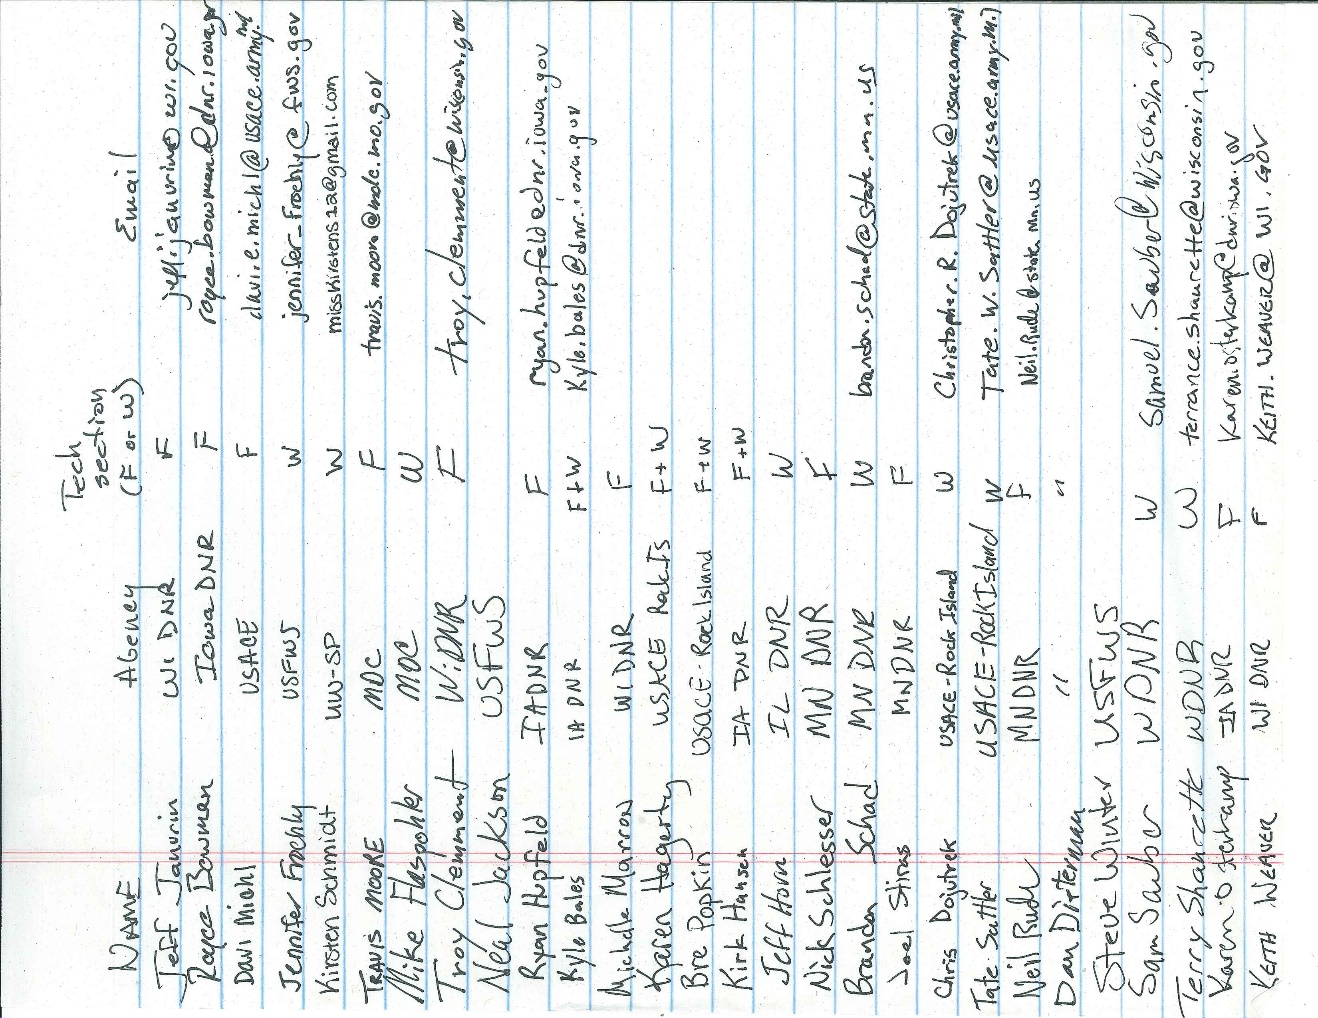 NAME Agency Tech section (F or W) Email
Jeff Janvrin WI DNR F jeff.janvrin@wi.gov
Royce Bowman Iowa DNR F royce.bowman@dnr.iowa.gov
Davi Michl USACE F davi.e.michl@usace.army.mil
Jennifer Frochly USFWS W jennifer_frochly@fws.gov
Kirsten Schmidt UW-SP W misskirstens12@gmail.com
TRAVIS MOORE MDC F travis.moore@mdc.mo.gov
Mike Flaspohler MDC W
Troy Clemment Wi.DNR F troy.clemment@wisconsin.gov
Neal Jackson USFWS
Ryan Hupfeld IADNR F ryan.hupfeld@dnr.iowa.gov
Kyle Bales IA DNR F+W Kyle.bales@dnr.iowa.gov
Michelle Marron WIDNR F
Karen Hagerty USACE Rock Is F+W
Bre Popkin USACE-Rock Island F+W
Kirk Hansen IA DNR F+W
Jeff Horn IL DNR W
Nick Schlesser MN DNR F
Brandon Schad MN DNR W brandon.schad@state.mn.us
Joel Stiras MNDNR F
Chris Dojutrek USACE-Rock Island W Christopher.R.Dojutrek@usace.army.mil
Tate Sattler USACE-Rock Island W Tate.W.Sattler@usace.army.mil
Neil Rude MNDNR F Neil.Rude@state.mn.us
Dan Dieterman " "
Steve Winter USFWS
Sam Sauber WDNR W Samuel.Sauber@Wisconsin.gov
Terry Shaurette WDNR W terrance.shaurette@wisconsin.gov
Karen Osterkamp IADNR F Karen.osterkamp@dnr.iowa.gov
KEITH WEAVER WI DNR F KEITH.WEAVER@WI.GOV